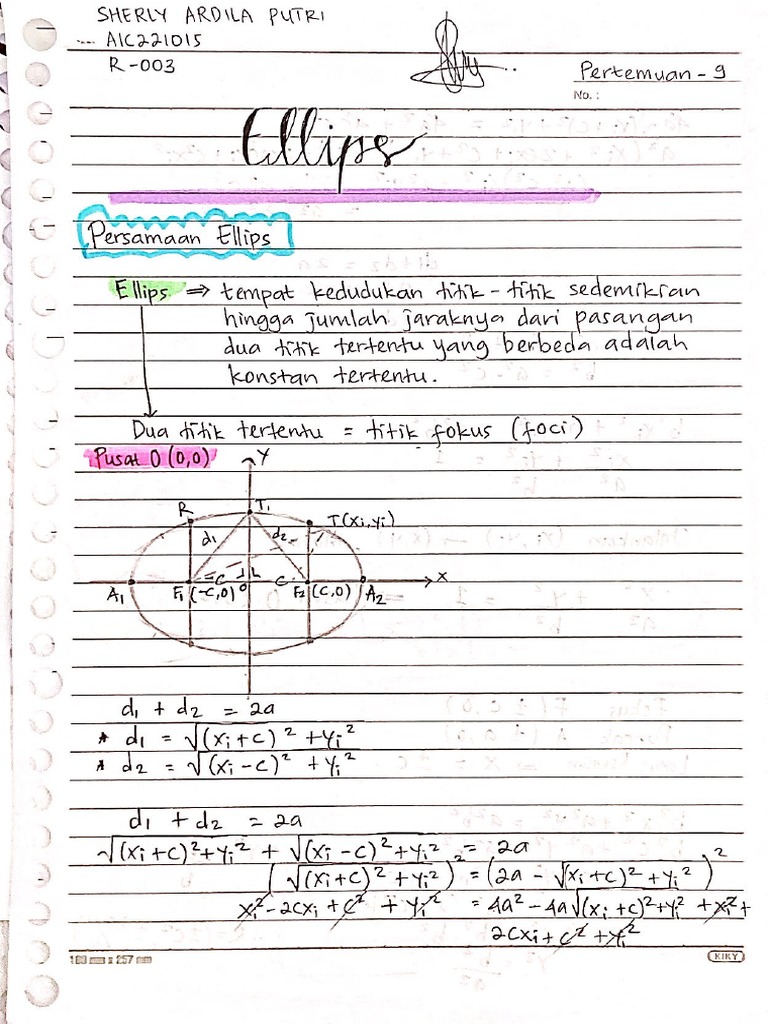 SHERLY ARDILA PUTRI
A1C221015
R-003
Pertemuan - 9
No. :
Ellips
Persamaan Ellips
Ellips ⇒ tempat kedudukan titik - titik sedemikian
hingga jumlah jaraknya dari pasangan
dua titik tertentu yang berbeda adalah
konstan tertentu.
Dua titik tertentu = titik fokus (foci)
Pusat O (0,0)
Y
R T₁ T(xᵢ,yᵢ)
d₁ d₂
-C C X
A₁ F₁ (-C,0) 0 F₂ (C,0) A₂
d₁ + d₂ = 2a
* d₁ = √(xᵢ+c)² + yᵢ²
* d₂ = √(xᵢ-c)² + yᵢ²
d₁ + d₂ = 2a
√(xᵢ+c)²+yᵢ² + √(xᵢ-c)²+yᵢ² = 2a
(√(xᵢ+c)² + yᵢ²)² = (2a - √(xᵢ+c)² + yᵢ²)²
xᵢ² - 2cxᵢ + c² + yᵢ² = 4a² - 4a√(xᵢ+c)²+yᵢ² + xᵢ² +
2cxᵢ + c² + yᵢ²
183 mm x 257 mm
KIKY